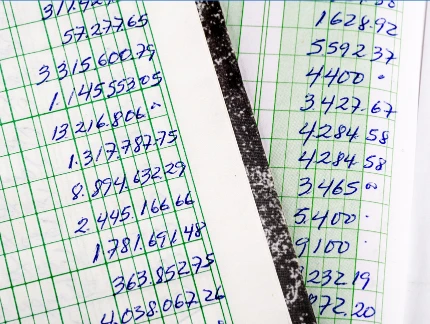 57.277.65
3 315 600.79
1.145553.05
13 216.806.=
1.317.787.75
8.894.632.29
2.445.166.66
1781.691.48
363.852.75
4.038.067.26
1628.92
5592 37
4400
3427.67
4284.58
4284 58
3465 00
5.400
9100
232.19
72.20